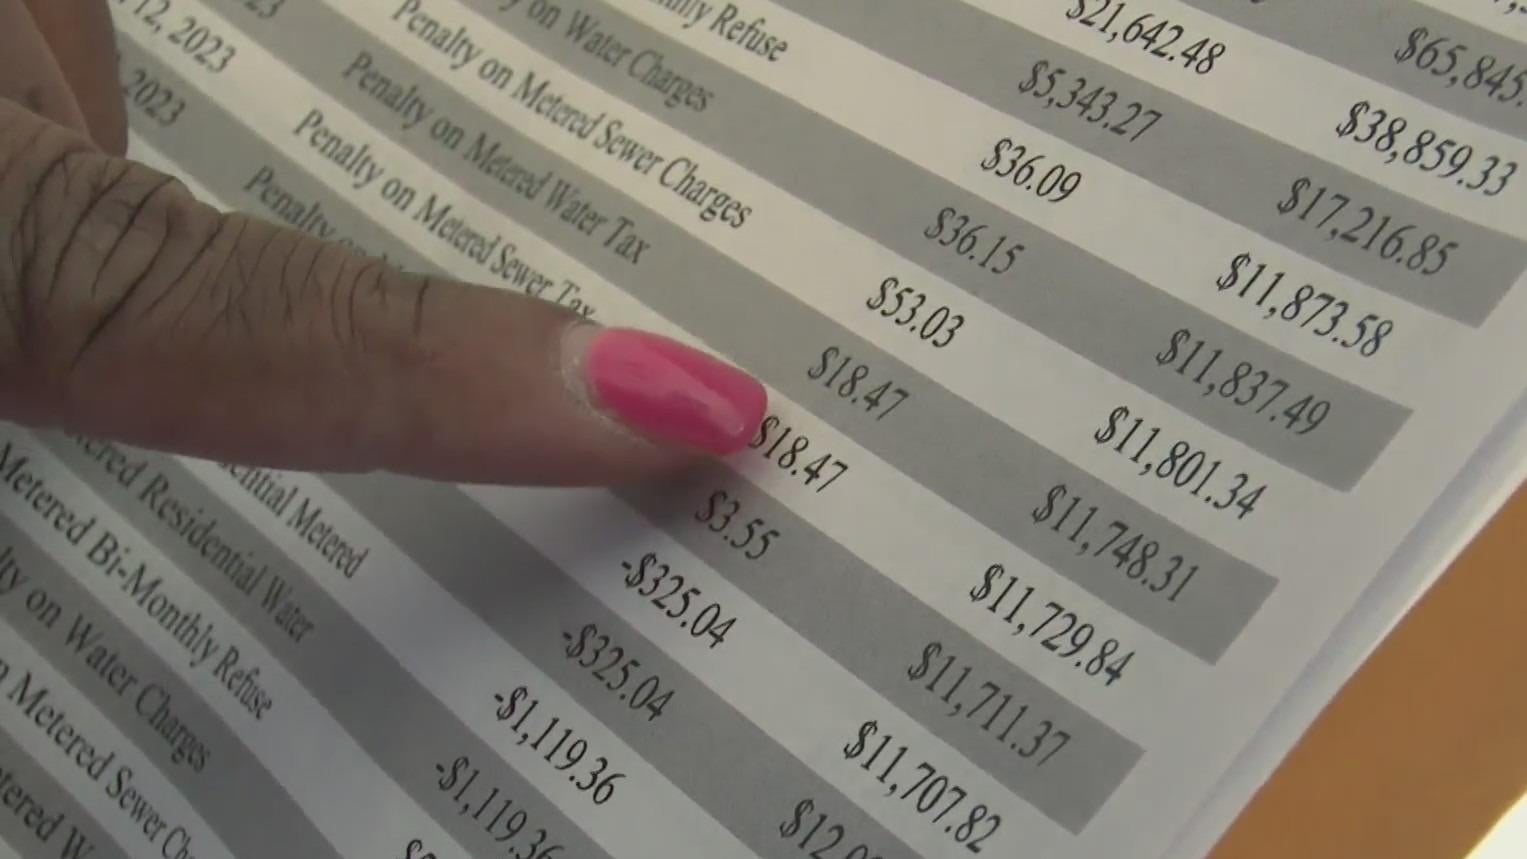 $65,845.
$21,642.48 $38,859.33
$5,343.27 $17,216.85
Refuse $36.09 $11,873.58
on Water Charges $36.15 $11,837.49
Penalty on Metered Sewer Charges $53.03 $11,801.34
23 Penalty on Metered Water Tax $18.47 $11,748.31
12, 2023 Penalty on Metered Sewer Tax $18.47 $11,729.84
2023 Penalty $3.55 $11,711.37
-$325.04 $11,707.82
-$325.04 $12,0
Metered -$1,119.36
Residential Water -$1,119.36
Metered Bi-Monthly Refuse
on Water Charges
Metered Sewer